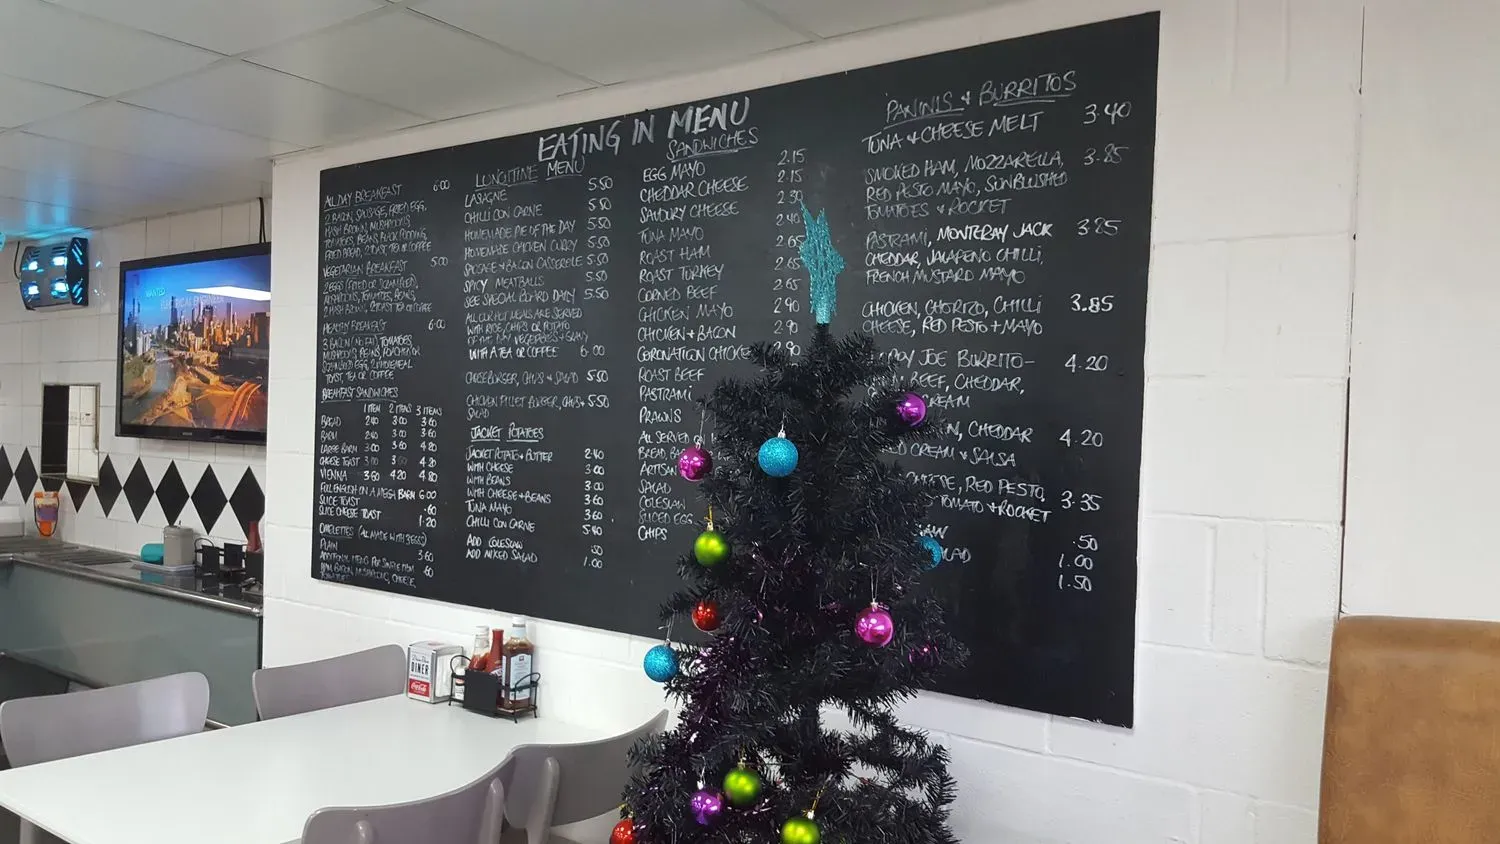 EATING IN MENU
ALL DAY BREAKFAST 6.00
2 BACON, SAUSAGE, FRIED EGG,
HASH BROWN, MUSHROOMS,
TOMATOES, BEANS, BLACK PUDDING,
FRIED BREAD, 2 TOAST, TEA OR COFFEE
VEGETARIAN BREAKFAST 5.00
2 EGGS (FRIED OR SCRAMBLED),
MUSHROOMS, TOMATOES, BEANS,
2 HASH BROWN, 2 TOAST TEA OR COFFEE
HEALTHY BREAKFAST 6.00
3 BACON (NO FAT), TOMATOES,
MUSHROOMS, BEANS, POACHED OR
SCRAMBLED EGG, 2 WHOLEMEAL
TOAST, TEA OR COFFEE
BREAKFAST SANDWICHES
1 ITEM 2 ITEMS 3 ITEMS
BREAD 2.40 3.00 3.60
BARM 2.40 3.00 3.60
LARGE BARM 3.00 3.60 4.20
CHEESE TOAST 3.00 4.20
VIENNA 3.60 4.20 4.80
FULL ENGLISH ON A MEGA BARM 6.00
SLICE TOAST .60
SLICE CHEESE TOAST 1.20
OMELETTES (ALL MADE WITH 3 EGGS)
PLAIN 3.60
ADDITIONAL ITEMS PER SINGLE ITEM .60
HAM, BACON, MUSHROOMS, CHEESE,
TOMATOES
LUNCHTIME MENU
LASAGNE 5.50
CHILLI CON CARNE 5.50
HOMEMADE PIE OF THE DAY 5.50
HOMEMADE CHICKEN CURRY 5.50
SAUSAGE + BACON CASSEROLE 5.50
SPICY MEATBALLS 5.50
SEE SPECIAL BOARD DAILY 5.50
ALL OUR HOT MEALS ARE SERVED
WITH RICE, CHIPS OR POTATO
OF THE DAY VEGETABLES + GRAVY
WITH A TEA OR COFFEE 6.00
CHEESEBURGER, CHIPS + SALAD 5.50
CHICKEN FILLET BURGER, CHIPS + 5.50
SALAD
JACKET POTATOES
JACKET POTATO + BUTTER 2.40
WITH CHEESE 3.00
WITH BEANS 3.00
WITH CHEESE + BEANS 3.60
TUNA MAYO 3.60
CHILLI CON CARNE 5.40
ADD COLESLAW .50
ADD MIXED SALAD 1.00
SANDWICHES
EGG MAYO 2.15
CHEDDAR CHEESE 2.15
SAVOURY CHEESE 2.30
TUNA MAYO 2.40
ROAST HAM 2.65
ROAST TURKEY 2.65
CORNED BEEF 2.65
CHICKEN MAYO 2.90
CHICKEN + BACON 2.90
CORONATION CHICKE 2.90
ROAST BEEF
PASTRAMI
PRAWNS
ALL SERVED ON
BREAD,
ARTISAN
SALAD
COLESLAW
SLICED EGG
CHIPS
PANINIS + BURRITOS
TUNA + CHEESE MELT 3.40
SMOKED HAM, MOZZARELLA, 3.85
RED PESTO MAYO, SUNBLUSHED
TOMATOES + ROCKET
PASTRAMI, MONTERAY JACK 3.85
CHEDDAR, JALAPENO CHILLI,
FRENCH MUSTARD MAYO
CHICKEN, CHORIZO, CHILLI 3.85
CHEESE, RED PESTO + MAYO
JOE BURRITO - 4.20
BEEF, CHEDDAR,
CREAM
CHEDDAR 4.20
CREAM + SALSA
CHEESE, RED PESTO, 3.35
TOMATO + ROCKET
.50
1.00
1.50
WANTED
ELECTRICAL ENGINEER
DINER
Coca-Cola